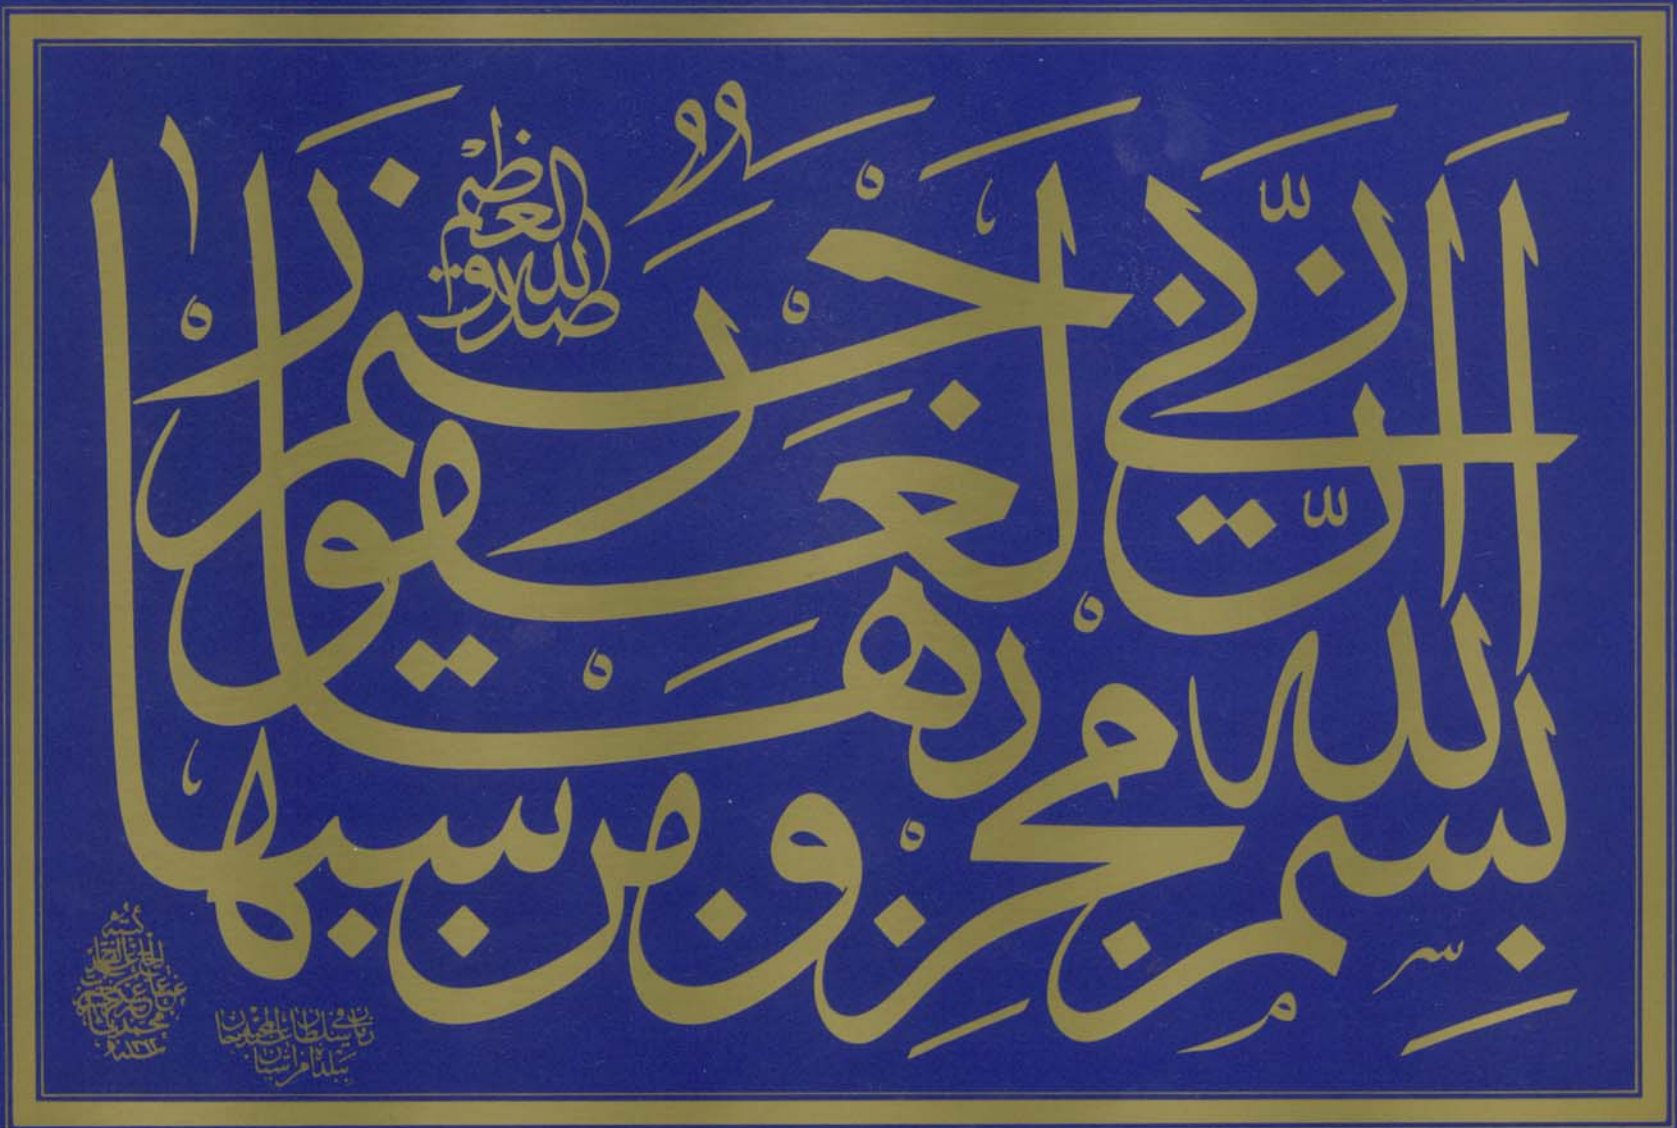 بسم الله مجريها ومرسيها
ان ربي لغفور رحيم
صدق الله العظيم